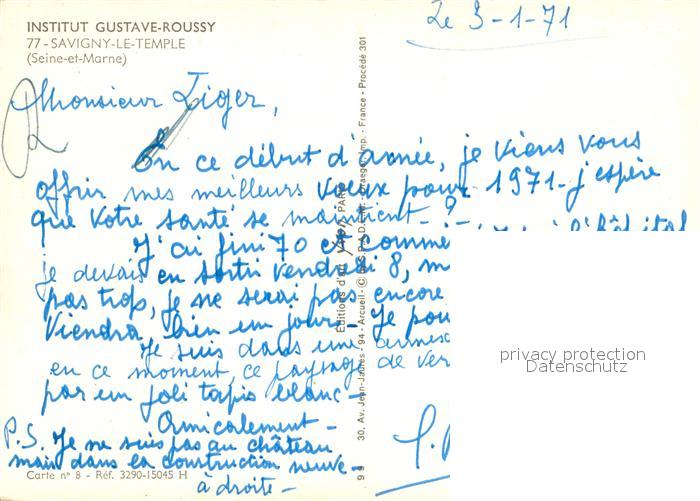 INSTITUT GUSTAVE-ROUSSY
77 - SAVIGNY-LE-TEMPLE
(Seine-et-Marne)
Le 3-1-71
Monsieur Tiger,
En ce début d'année, je viens vous
offrir mes meilleurs voeux pour 1971 - j'espère
que votre santé se maintient - ?
J'ai fini 70 et commencé
je devais en sortir vendredi 8, m
pas trop, je ne serai pas encore
viendra bien un jour. Je pou
Je suis dans une annexe
en ce moment, ce paysage de ver
par un joli tapis blanc -
Amicalement -
P.S. Je ne suis pas au château
mais dans la construction neuve
à droite -
Carte n° 8 - Réf. 3290-15045 H
30, Av. Jean-Jaurès - 94 - Arcueil
Imp. - France - Procédé 301
privacy protection
Datenschutz